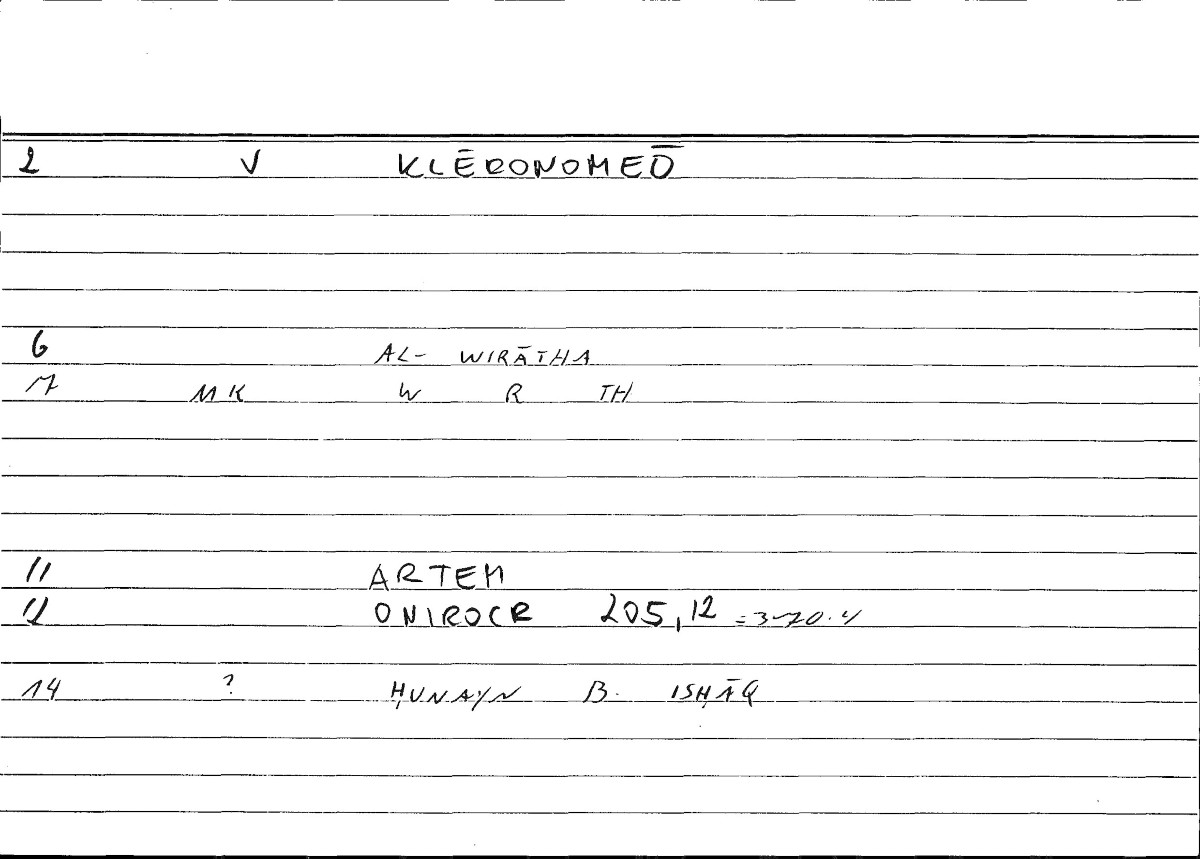 2 V KLĒRONOMEŌ
6 AL- WIRĀTHA
7 MK W R TH
11 ARTEM
12 ONIROCR 205,12
14 ? ḤUNAYN B. ISḤĀQ